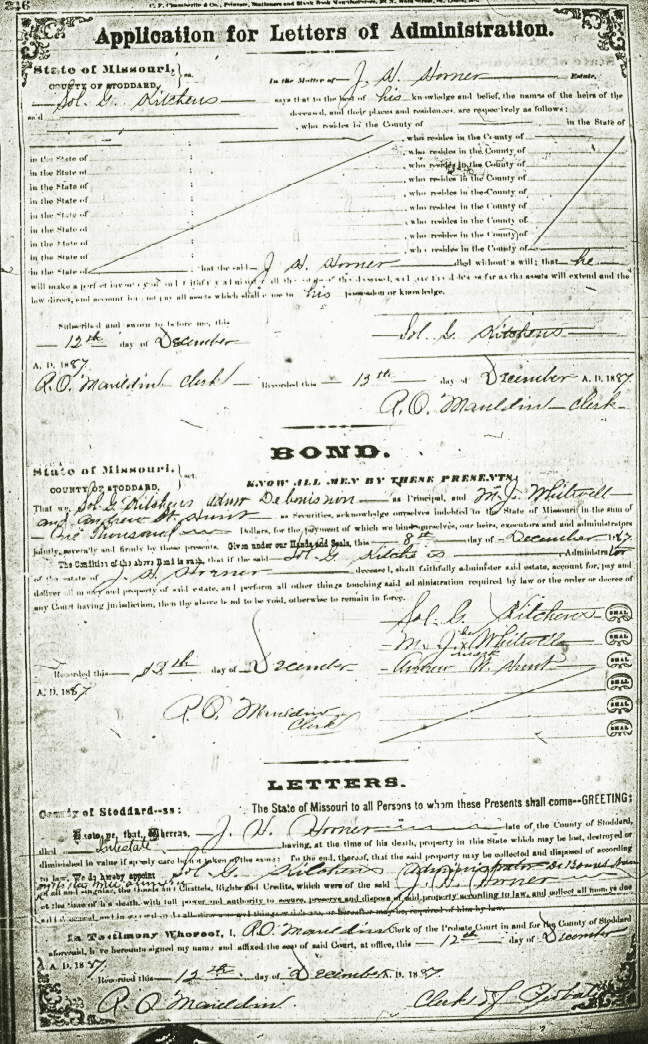 216
Application for Letters of Administration.
State of Missouri, } ss.
COUNTY OF STODDARD,
In the Matter of J. H. Horner Estate.
Sol. G. Kitchens says that to the best of his knowledge and belief, the names of the heirs of the
said deceased, and their places and residences, are respectively as follows:
, who resides in the County of in the State of
, who resides in the County of
in the State of , who resides in the County of
in the State of , who resides in the County of
in the State of , who resides in the County of
in the State of , who resides in the County of
in the State of , who resides in the County of
in the State of , who resides in the County of
in the State of , who resides in the County of
in the State of that the said J. H. Horner died without a will; that he
will make a perfect inventory and administer all the of the deceased, and the debts as far as the assets will extend and the
law direct, and account for and pay all assets which shall come to his possession or knowledge.
Subscribed and sworn to before me, this
12th day of December
Sol. G. Kitchens
A. D. 1887
R. O. Mauldin Clerk Recorded this 13th day of December A. D. 1887
R. O. Mauldin Clerk
BOND.
State of Missouri, } sct.
COUNTY OF STODDARD,
KNOW ALL MEN BY THESE PRESENTS,
That we, Sol. G. Kitchens Admr Debonisnon as Principal, and M. J. Whitwell
and Andrew H. Hunt as Securities, acknowledge ourselves indebted to the State of Missouri in the sum of
One thousand Dollars, for the payment of which we bind ourselves, our heirs, executors and administrators
jointly, severally and firmly by these presents. Given under our Hands and Seals, this 8th day of December 1887
The Condition of the above Bond is such, that if the said Sol. G. Kitchens Administrator
of the estate of J. H. Horner deceased, shall faithfully administer said estate, account for, pay and
deliver all money and property of said estate, and perform all other things touching said administration required by law or the order or decree of
any Court having jurisdiction, then the above bond to be void, otherwise to remain in force.
Sol. G. Kitchens SEAL
M. J. his mark Whitwell SEAL
Andrew H. Hunt SEAL
SEAL
SEAL
SEAL
Recorded this 13th day of December
A. D. 1887
R. O. Mauldin
Clerk
LETTERS.
County of Stoddard--ss: The State of Missouri to all Persons to whom these Presents shall come--GREETING:
Know ye, that Whereas, J. H. Horner late of the County of Stoddard,
died Intestate having, at the time of his death, property in this State which may be lost, destroyed or
diminished in value if speedy care be not taken of the same: To the end, thereof, that the said property may be collected and disposed of according
to law, We do hereby appoint Sol. G. Kitchens Administrator De Bonis
of all and singular, the Goods Chattels, Rights and Credits, which were of the said J. H. Horner
at the time of his death, with full power and authority to secure, preserve and dispose of said property according to law, and collect all moneys due
said deceased, and in general to do all other and things which are or hereafter may be, required of him by law.
In Testimony Whereof, I, R. O. Mauldin Clerk of the Probate Court in and for the County of Stoddard
aforesaid, have hereunto signed my name and affixed the seal of said Court, at office, this 12th day of December
A. D. 1887.
Recorded this 12th day of December A. D. 1887.
R. O. Mauldin Clerk of Probate